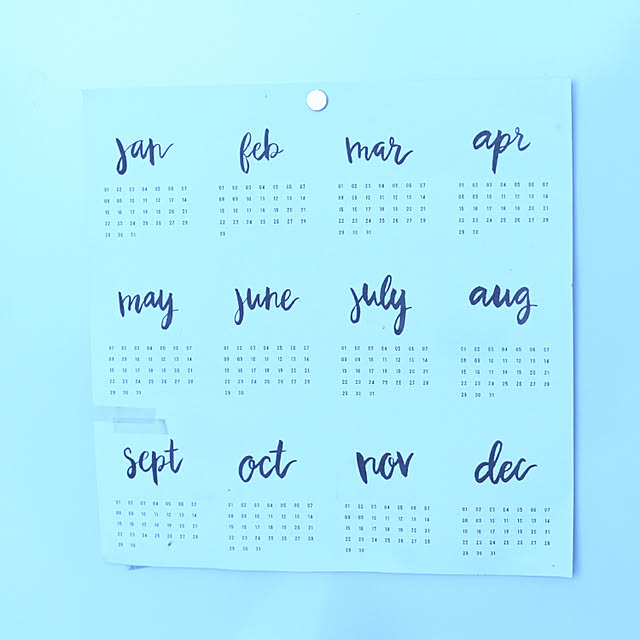 jan
01 02 03 04 05 06 07
08 09 10 11 12 13 14
15 16 17 18 19 20 21
22 23 24 25 26 27 28
29 30 31
feb
01 02 03 04 05 06 07
08 09 10 11 12 13 14
15 16 17 18 19 20 21
22 23 24 25 26 27 28
29
mar
01 02 03 04 05 06 07
08 09 10 11 12 13 14
15 16 17 18 19 20 21
22 23 24 25 26 27 28
29 30 31
apr
01 02 03 04 05 06 07
08 09 10 11 12 13 14
15 16 17 18 19 20 21
22 23 24 25 26 27 28
29 30
may
01 02 03 04 05 06 07
08 09 10 11 12 13 14
15 16 17 18 19 20 21
22 23 24 25 26 27 28
29 30 31
june
01 02 03 04 05 06 07
08 09 10 11 12 13 14
15 16 17 18 19 20 21
22 23 24 25 26 27 28
29 30
july
01 02 03 04 05 06 07
08 09 10 11 12 13 14
15 16 17 18 19 20 21
22 23 24 25 26 27 28
29 30 31
aug
01 02 03 04 05 06 07
08 09 10 11 12 13 14
15 16 17 18 19 20 21
22 23 24 25 26 27 28
29 30 31
sept
01 02 03 04 05 06 07
08 09 10 11 12 13 14
15 16 17 18 19 20 21
22 23 24 25 26 27 28
29 30
oct
01 02 03 04 05 06 07
08 09 10 11 12 13 14
15 16 17 18 19 20 21
22 23 24 25 26 27 28
29 30 31
nov
01 02 03 04 05 06 07
08 09 10 11 12 13 14
15 16 17 18 19 20 21
22 23 24 25 26 27 28
29 30
dec
01 02 03 04 05 06 07
08 09 10 11 12 13 14
15 16 17 18 19 20 21
22 23 24 25 26 27 28
29 30 31